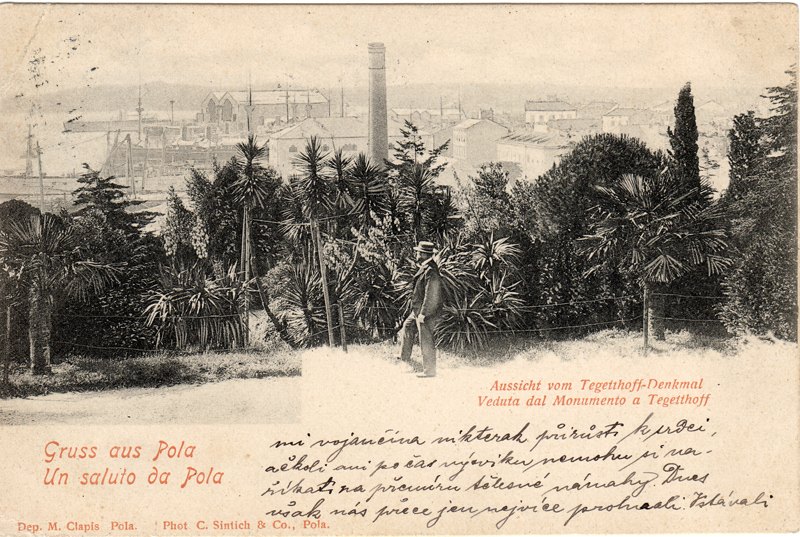 Aussicht vom Tegetthoff-Denkmal
Veduta dal Monumento a Tegetthoff
Gruss aus Pola
Un saluto da Pola
mi vojančina nikterak přirůsti k srdci,
ačkoli ani počas výcviku nemohu si na-
říkati na přemíru tělesné námahy. Dnes
však nás přece jen nejvíce prohnali. Vstávali
Dep. M. Clapis Pola. Phot C. Sintich & Co., Pola.